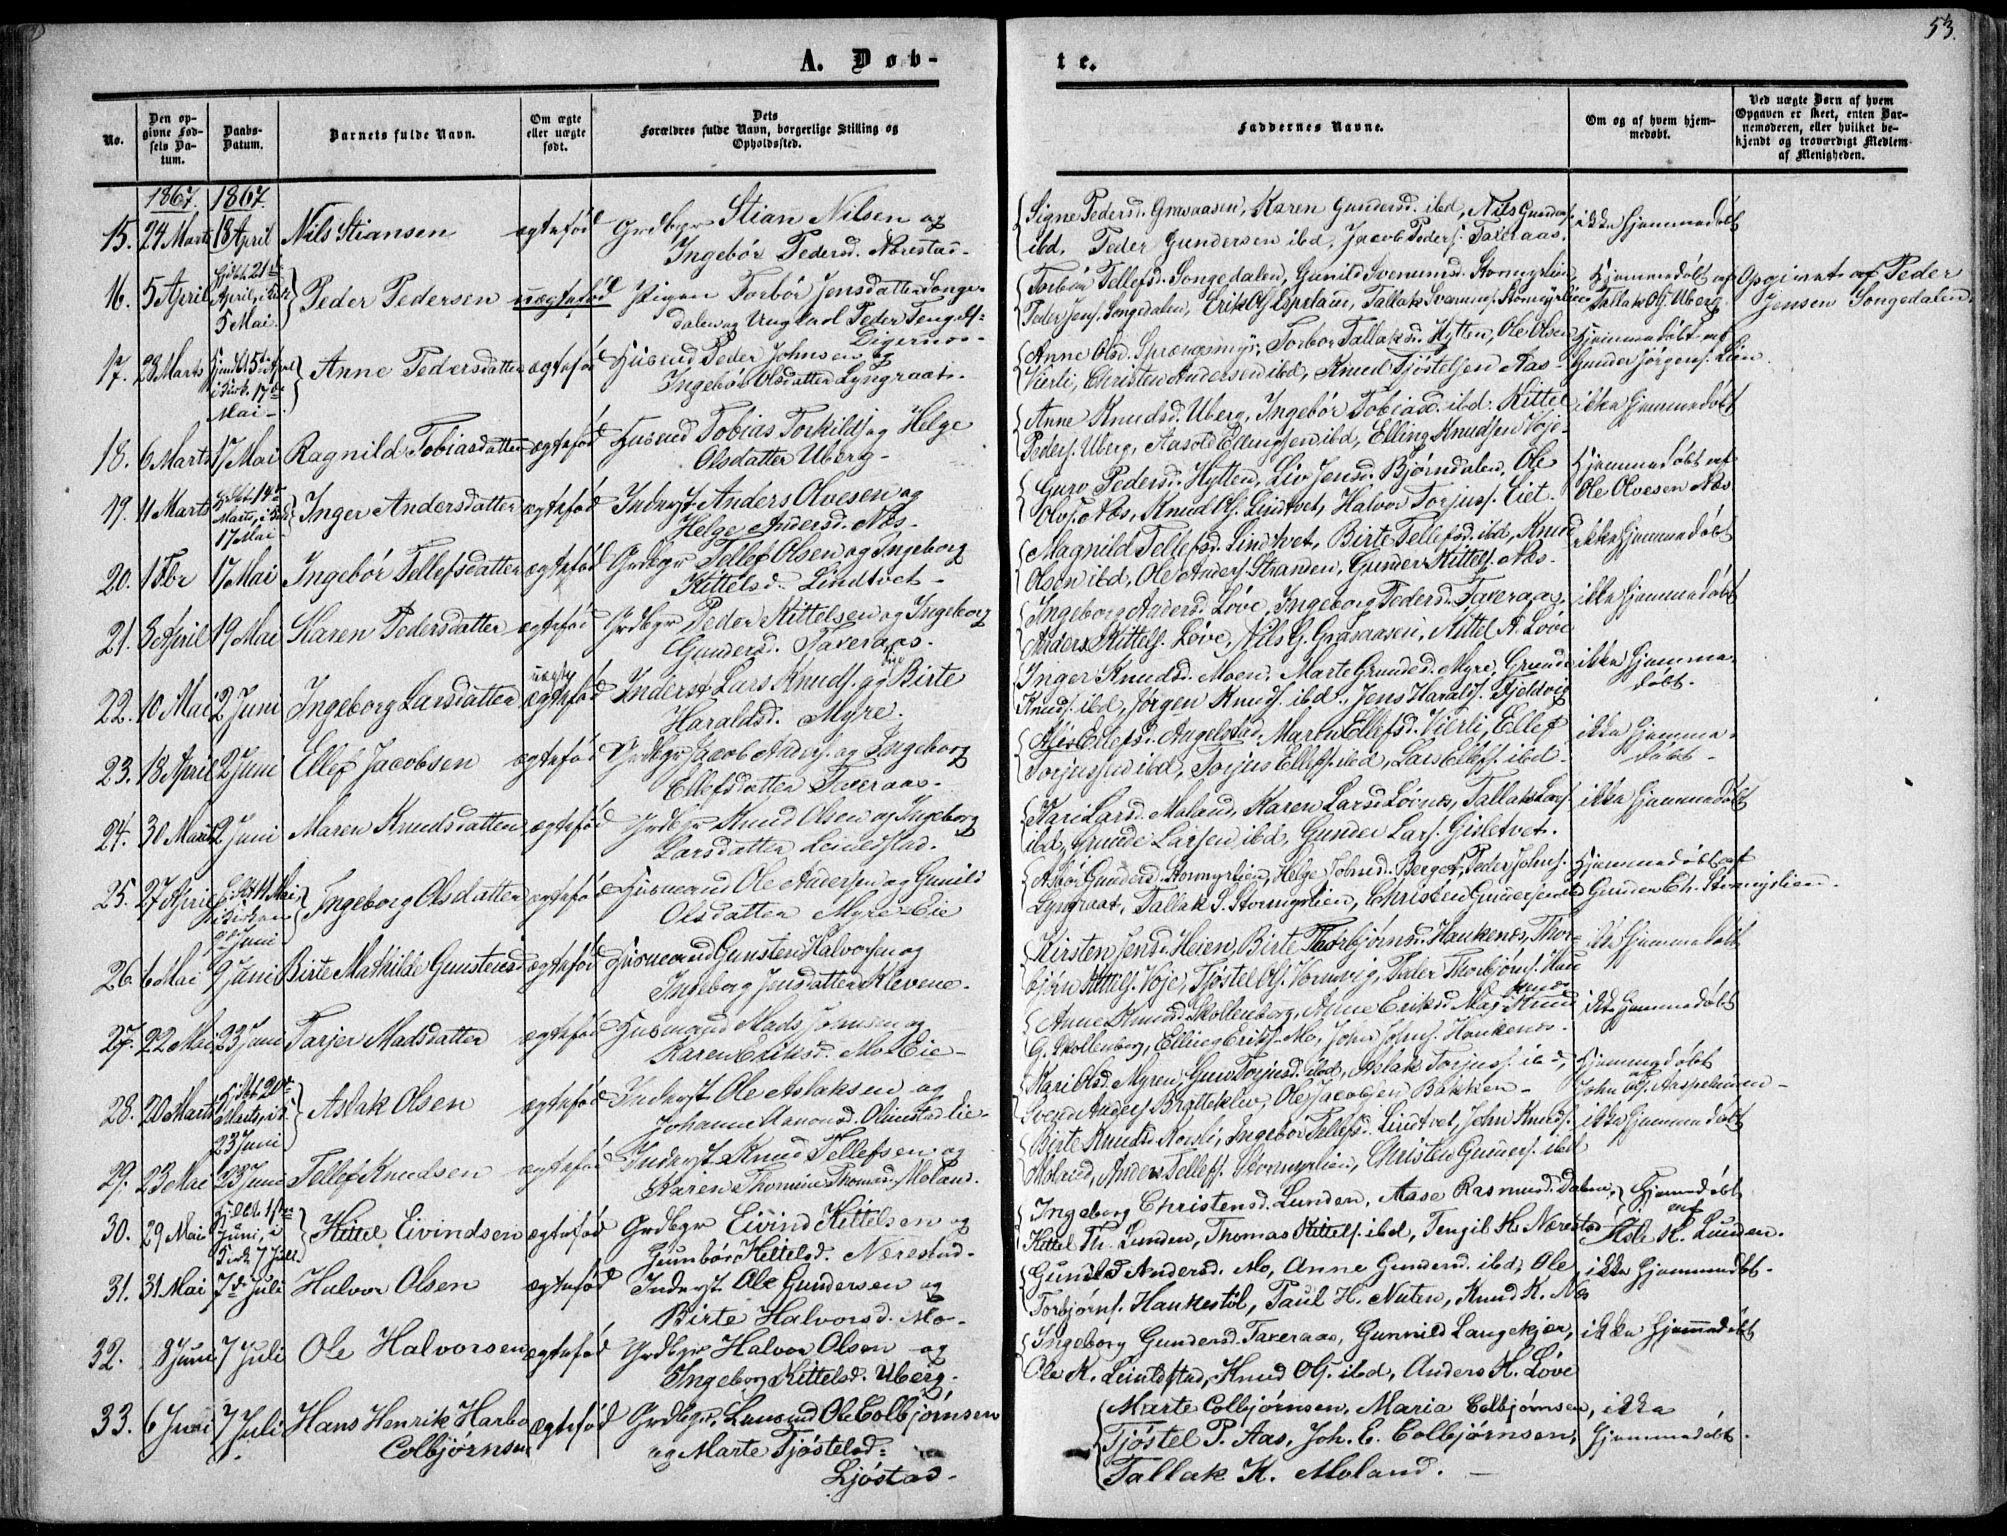 53.
A. Døb-
te.
No.
Den op-
givne Fød-
sels Da-
tum.
Daabs-
Datum.
Barnets fulde Navn.
Om ægte
eller uægte
født.
Dets
Forældres fulde Navn, borgerlige Stilling og
Opholdssted.
Faddernes Navne.
Om og af hvem hjem-
medøbt.
Ved uægte Børn af hvem
Opgaven er skeet, enten Bar-
nemoderen, eller hvilket be-
kjendt og troværdigt Medlem
af Menigheden.
1867. 1867.
15. 24 Marts 18 April Nils Stiansen ægtefød Grdbgr Stian Nilsen og
Ingebør Pedersd. Nærestad-
Signe Pedersd. Gravaasen, Karen Gundersd. ibd, Nils Gunders.
ibd. Peder Gundersen ibd, Jacob Peders. Taxeraas.
ikke hjemmedøbt
16. 5 April Hjdbt 21de April, i Kirk 5 Mai. Peder Pedersen uægtefød Pigen Torbør Jensdatter Songe-
dalen og Ungkarl Peder Tengels-
Digernes-
Torbør Tellefsd. Songedalen, Gunild Svenumsd. Stormyrlien,
Peder Jens. Songedalen, Erik Ols. Espeland, Tallak Svenums. Stormyrlien
Hjemmedøbt af
Tallak Ols. Uberg
Opgivet af Peder
Jensen Songedalen
17. 28 Marts Hjmdbt 5te April i Kirk. 17de Mai- Anne Pedersdatter ægtefød Husmd Peder Johnsen og
Ingebør Olsdatter Lyngraat-
Anne Olsd. Sprængsmyr, Torbør Tallaksd. Hytten, Ole Olsen
Vierli, Christen Andersen ibd, Knud Tjøstelsen Aas-
Hjemmedøbt af
Gunder Jørgens. Lien.
18. 6 Marts 17 Mai Ragnild Tobiasdatter ægtefød Husmd Tobias Torkilds. og Helge
Olsdatter Uberg-
Anne Knudsd. Uberg, Ingebør Tobiasd. ibd. Kittel
Peders. Uberg, Aasold Ellingsen ibd, Elling Knudsen Voje-
ikke hjemmedøbt
19. 11 Marts Marts, i Kirk 17 Mai Inger Andersdatter ægtefød Inderst Anders Olvesen og
Helge Andersd. Næs-
Guro Pedersd. Hytten, Liv Jensd. Bjørndalen, Ole
Olvs. Næs, Knud Ols. Lindtvet, Halvor Torjus. Eiet.
Hjemmedøbt af
Ole Olvesen Næs
20. 1 Fbr 17 Mai Ingebør Tellefsdatter ægtefød Grdbgr Tellef Olsen og Ingeborg
Kittelsd. Lindtvet-
Magnild Tellefsd. Lindtvet, Birte Tellefsd. ibd, Knud
Olsen ibd, Ole Anders. Stranden, Gunder Kittels. Næs.
ikke hjemmedøbt
21. 3 April 19 Mai Karen Pedersdatter ægtefød Grdbgr Peder Kittelsen og Ingeborg
Gundersd. Taxeraas.
Ingeborg Andersd. Løve, Ingeborg Pedersd. Taxeraas
Anders Kittels. Løve, Nils G. Gravaasen, Kittel A. Løve
ikke hjemmedøbt
22. 10 Mai 2 Juni Ingeborg Larsdatter uægte ægtefød Inderst Lars Knuds. og Birte
Haraldsd. Myre.
Inger Knudsd. Moen. Marte Grundesd. Myre, Grunde
Knuds. ibd, Jørgen Knuds. ibd. Jens Haralds. Fjeldvig
ikke hjemme-
døbt.
23. 18 April 2 Juni Ellef Jacobsen ægtefød Grdbgr Jacob Anders. og Ingeborg
Ellefsdatter Taxeraas.
Ellefsd. Angelstad, Maren Ellefsd. Vierli, Ellef
Torjussen ibd, Torjus Ellefs. ibd, Lars Ellefs. ibd.
ikke hjemme-
døbt-
24. 30 Marts 2 Juni Maren Knudsdatter ægtefød Grdbgr Knud Olsen og Ingeborg
Larsdatter Leivedstad.
Kari Larsd. Moland, Karen Larsd. Løvnes, Tallak Lars.
ibd, Grunde Larsen ibd, Gunder Lars. Gisletvet.
ikke hjemmedøbt
25. 27 April 11 Mai i Kirken 9de Juni Ingeborg Olsdatter ægtefød Husmand Ole Andersen og Gunild
Olsdatter Myre-Eie
Asbør Gundersd. Stormyrlien, Helge Johnsd. Berget, Peder Johns.
Lyngraat, Tallak S. Stormyrlien, Christen Gundersen ibd
Hjemmedøbt af
Gunder Ch. Stormyrlien.
26. 6 Mai 9 Juni Birte Mathilde Gunstensd ægtefød Husmand Gunsten Halvorsen og
Ingeborg Jensdatter Klevene.
Kirsten Jensd. Heien, Birte Thorbjørnsd. Haukenæs, Thor-
bjørn Kittels. Voje, Tjøstel Ols. Vormvig, Peder Thorbjørns. Hauke
næs
ikke hjemmedøbt
27. 22 Mai 23 Juni Tarjer Madsdatter ægtefød Husmand Mads Johnsen og
Karen Eriksd. Mo Eie-
Anne Knudsd. Skollenborg, Anne Eriksd. Mo, Knud
G. Skollenborg, Elling Eriks. Mo, John Johns. Haukenes.
ikke hjemmedøbt
28. 20 Marts Hjdbt 20de Marts, i K. 23 Juni Aslak Olsen ægtefød Inderst Ole Aslaksen og
Johanne Aanonsd. Olimstad Eie-
Kari Olsd. Myren, Guro Torjusd. ibd, Aslak Torjus. ibd,
Svend Anders. Bratteklev, Ole Jacobsen Bakken-
Hjemmedøbt
af
John Ols. Aaspelunden-
29. 23 Mai 23 Juni Tellef Knudsen ægtefød Inderst Knud Tellefsen og
Karen Thomine Thomasd. Moland.
Birte Knudsd. Korsli, Ingebør Tellefsd. Lindtvet, John Knuds.
Molund, Anders Tellefs. Stormyrlien, Christen Gunders. ibd
ikke hjemmedøbt
30. 29 Mai Juni, i Kirk 7 Juli Kittel Eivindsen ægtefød Grdbgr Eivind Kittelsen og
Gunbør Kittelsd. Nærestad-
Ingeborg Christensd. Lunden, Aase Rasmusd. Dalen,
Kittel Th. Lunden, Thomas Kittels. ibd, Tengil Hs Nærestad
Hjemmedøbt
af
Asle K. Lunden.
31. 31 Mai 7de Juli Halvor Olsen ægtefød Inderst Ole Gundersen og
Birte Halvorsd. Mo-
Gunild Andersd. Mo, Anne Gundersd. ibd, Ole
Torbjørns. Haukestøl, Paul H. Nuten, Knud K. Næs
ikke hjemmedøbt-
32. 8 Juni 7 Juli Ole Halvorsen ægtefød Grdbgr Halvor Olsen og
Ingeborg Kittelsd. Uberg.
Ingeborg Gundersd. Taxeraas, Gunnild Langekjær,
Ole K. Leivedstad, Knud Ols. ibd, Anders K. Løve
ikke hjemmedøbt
33. 6 Juni 7 Juli Hans Henrik Harbo
Colbjørnsen ægtefød Grdbgr, Lensmd Ole Colbjørnsen
og Marte Tjøstelsd.
Ljøstad-
Marte Colbjørnsen, Maria Colbjørnsen,
Tjøstel P. Aas, Joh. E. Colbjørnsen,
Tallak K. Moland.
ikke
hjemmedøbt.